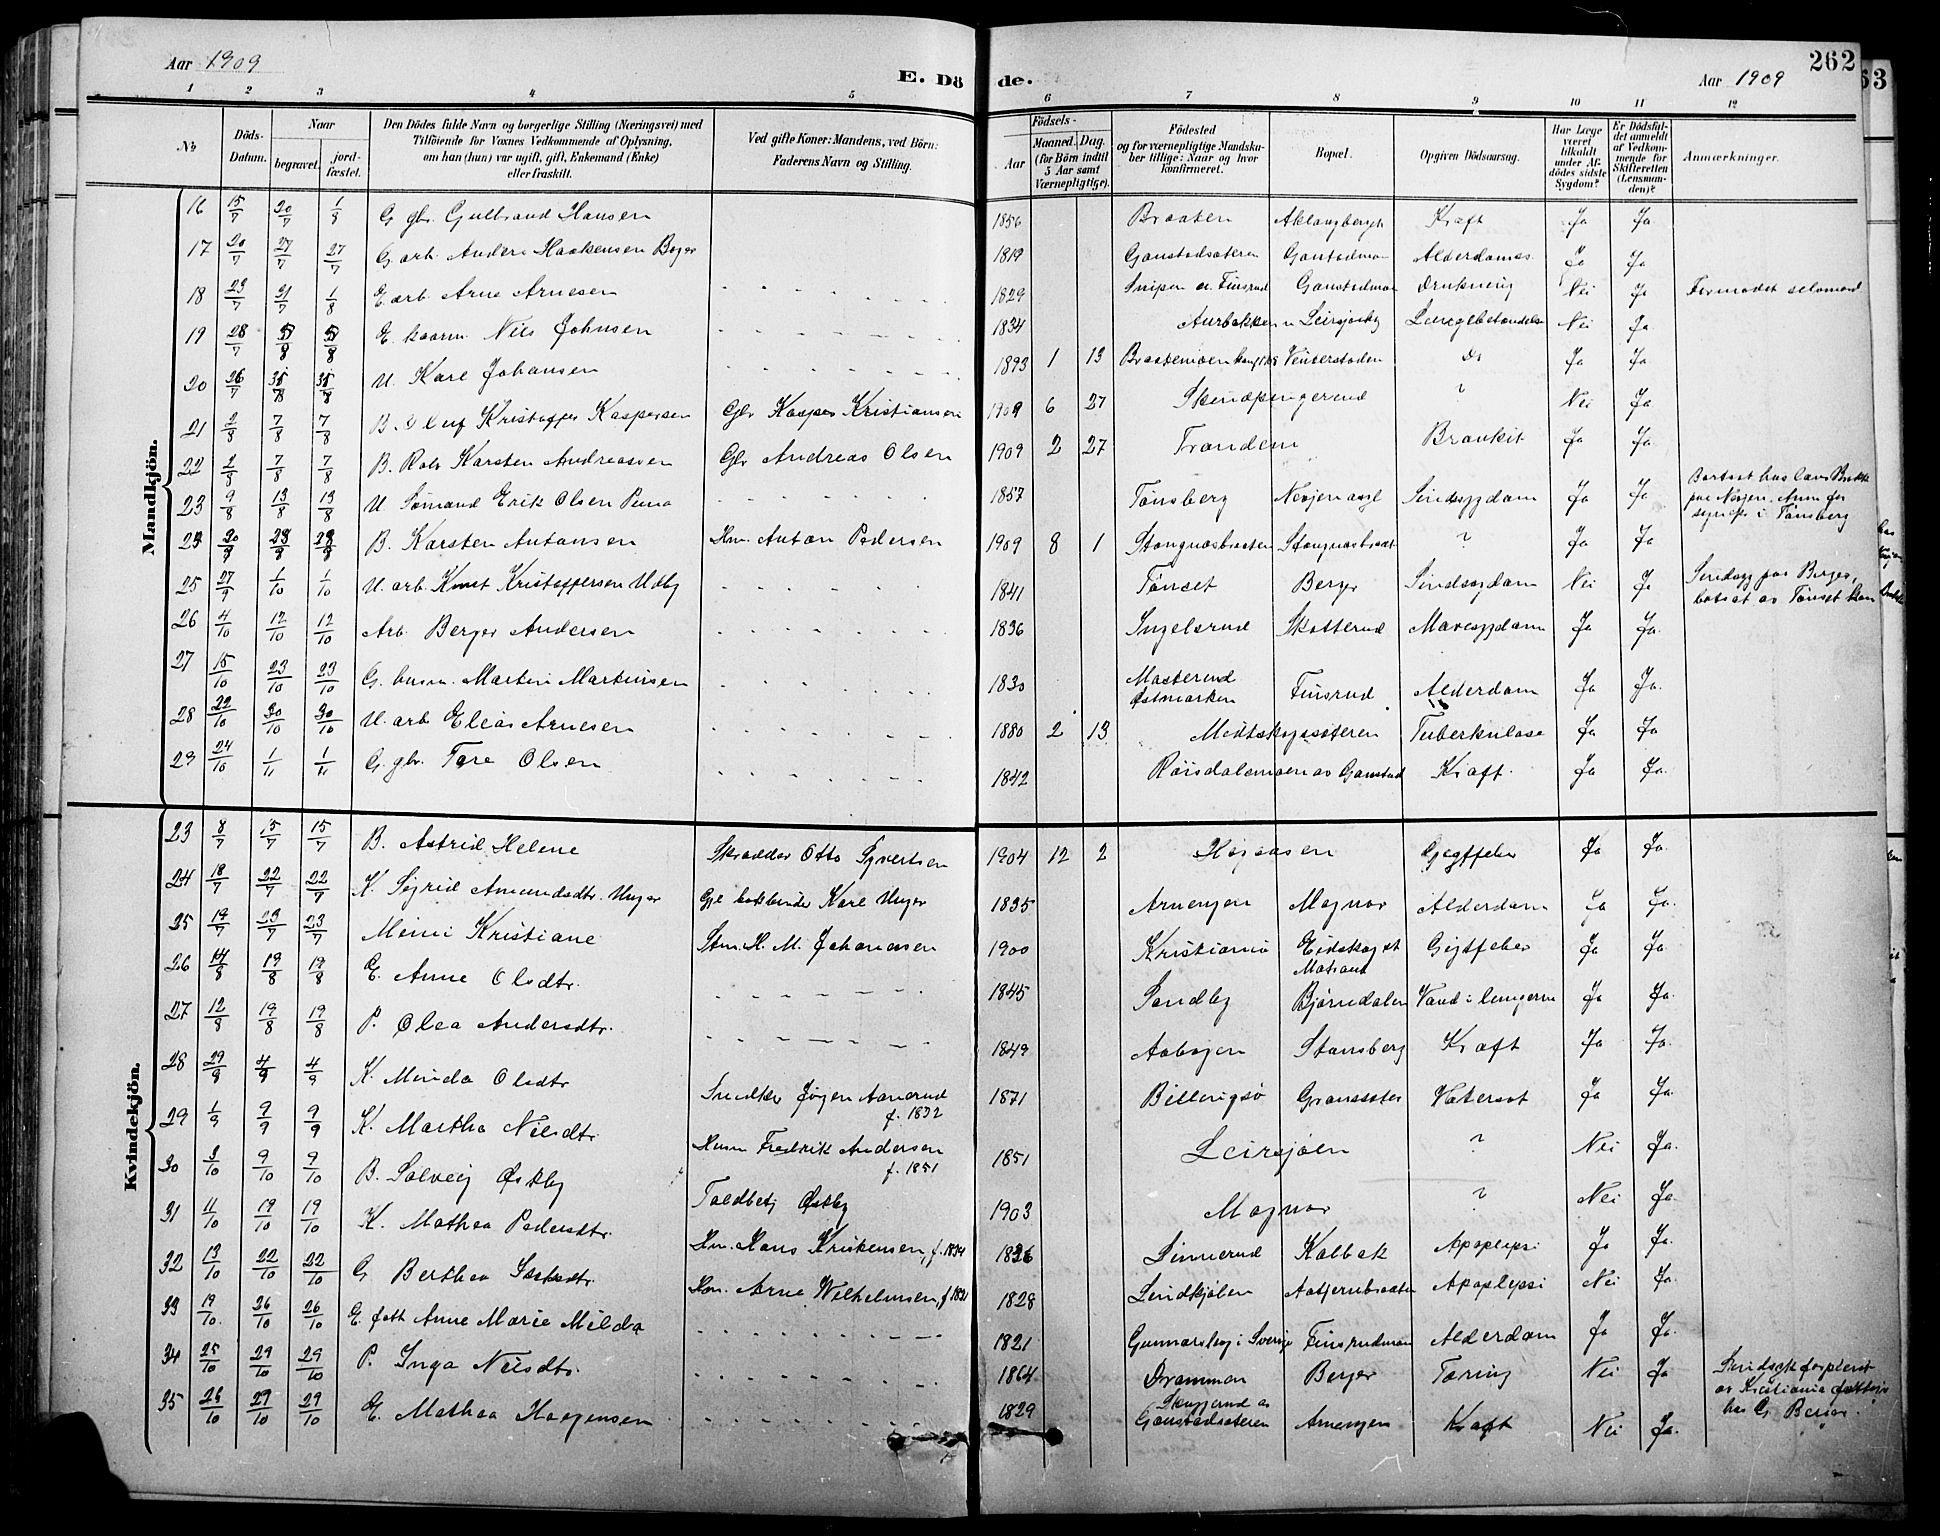 Aar 1909
E. Dö
de.
Aar 1909
262
1 2 3 4 5 6 7 8 9 10 11 12
No
Döds-Datum.
Naar
begravet.
jordfæstet.
Den Dödes fulde Navn og borgerlige Stilling (Næringsvei) med
Tilföiende for Voxnes Vedkommende af Oplysning,
om han (hun) var ugift, gift, Enkemand (Enke)
eller fraskilt.
Ved gifte Koner: Mandens, ved Börn:
Faderens Navn og Stilling.
Födsels-
Aar
Maaned. Dag.
(for Börn indtil
5 Aar samt
Værnepligtige).
Födested
og for værnepligtige Mandska-
ber tillige: Naar og hvor
konfirmeret.
Bopæl.
Opgiven Dödsaarsag.
Har Læge
været
tilkaldt
under Af-
dödes sidste
Sygdom?
Er Dödsfal-
det anmeldt
af Vedkom-
mende for
Skifteretten
(Lensman-
den)?
Anmærkninger.
Mandkjön.
16 15/7 20/7 1/8 G. gbr. Gulbrand Hansen 1856 Braaten Kraft Ja Ja
17 20/7 27/7 27/7 G. arb. Anders Haakensen Berger 1819 Gaustadsæteren Gaustadmoen Alderdoms. Ja Ja
18 23/7 31/7 1/8 E. arb. Arne Arnesen 1829 Snipen u. Finsrud Gaustadmoen Drukning Nei Ja Formodet selvmord
19 28/7 5/8 5/8 E. kaarm. Nils Johnsen 1834 Aurbakken u. Leirsjøeby Nei Ja
20 26/7 Karl Johansen 1893 1 13 Braatemoen Vinterstaden Do Ja Ja
21 2/8 7/8 7/8 B. Oluf Kristoffer Kaspersen Gbr Kasper Kristiansen 1909 6 27 Skindpengerud ? Nei Ja
22 2/8 7/8 7/8 B. Rolv Karsten Andreassen Gbr Andreas Olsen 1909 2 27 Tranden Bronkit Ja Ja
23 9/8 13/8 13/8 U. Sømand Erik Olsen 1857 Tønsberg Sindssygdom Ja Ja
B. Karsten Antonsen Hm. Anton Pedersen 1909 8 1 Stangnæsbraaten Stangnæsbraat ? Ja Ja
25 27/9 1/10 1/10 U. arb. Knut Kristoffersen Udby 1841 Tønset Berger Sindssygdom Nei Ja
26 4/10 12/10 12/10 Arb. Berger Andersen 1836 Ingelsrud Skotterud Mavesygdom Ja Ja
27 15/10 23/10 23/10 G. husm. Martin Martinsen 1830 Masterud Østmarken Finsrud Alderdom Ja Ja
28 22/10 30/10 30/10 U. arb. Elias Arnesen 1880 2 13 Medskogssæteren Tuberkulose Ja Ja
29 24/10 1/11 1/11 G. gbr. Tore Olsen 1842 Røisdalemoen av Gaustad Kraft Ja Ja
Kvindekjön.
23 8/7 15/7 15/7 B. Astrid Helene Skrædder Otto Syvertsen 1904 12 2 Gigtfeber Ja Ja
24 18/7 22/7 22/7 K. Sigrid Amundsdtr. Unger bokbinder Karl Unger 1835 Arnengen Magnor Alderdom Ja Ja
25 19/7 23/7 23/7 Mimi Kristiane Stm. H. M. Johansen 1900 Kristiania Eidskog st Matrand Gigtfeber Ja Ja
26 14/8 19/8 19/8 E. Anne Olsdtr. 1845 Sandby Bjørndalen Vand i lungerne Ja Ja
27 12/8 19/8 19/8 P. Olea Andersdtr. 1849 Aabogen Stansberg Kraft Ja Ja
28 29/8 4/9 4/9 K. Minda Olsdtr Snedker Jørgen Aanerud f. 1832 1871 Billingsø Granssæter Vatersot Ja Ja
29 1/9 9/9 9/9 K. Martha Nilsdtr. Husm Fredrik Andersen f. 1851 1851 Leirsjøen ? Nei Ja
30 3/10 9/10 9/10 B. Solveig Østby Toldbetj Østby 1903 Magnor ? Nei Ja
31 11/10 19/10 19/10 K. Mathea Pedersdtr. Hm. Hans Kristensen, f. 1834 1836 Linnerud Kalbak Apoplexi Ja Ja
32 13/10 22/10 22/10 G Berthea Hm. Arne Wilhelmsen, f 1828 Lindkjølen Aatjernbraaten Apoplexsi Nei Ja
33 19/10 26/10 26/10 E. fatt. Anne Marie Milda 1821 Gunnarskog i Sverige Finsrudmoen Alderdom Ja Ja
34 25/10 29/10 29/10 P. Inga Nilsdtr. 1864 Drammen Berger Tæring Nei Ja
35 26/10 29/10 29/10 E. Mathea Haagensen 1829 Skuggerud av Gaustadsæteren Arnengen Kraft Nei Ja